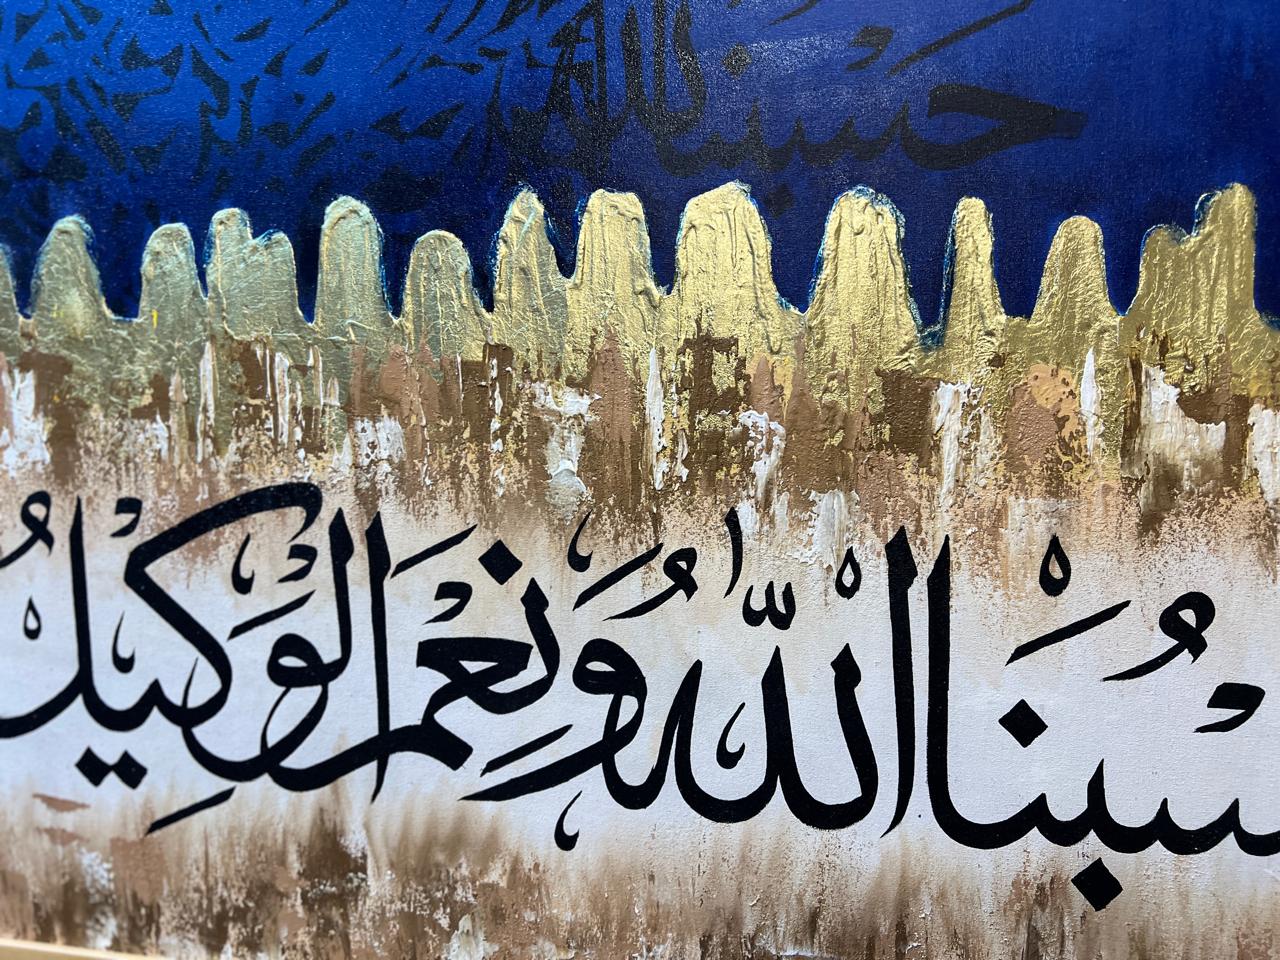 حسبنا الله
سبُنَا اللّٰهُ وَنِعْمَ الْوَكِيلُ